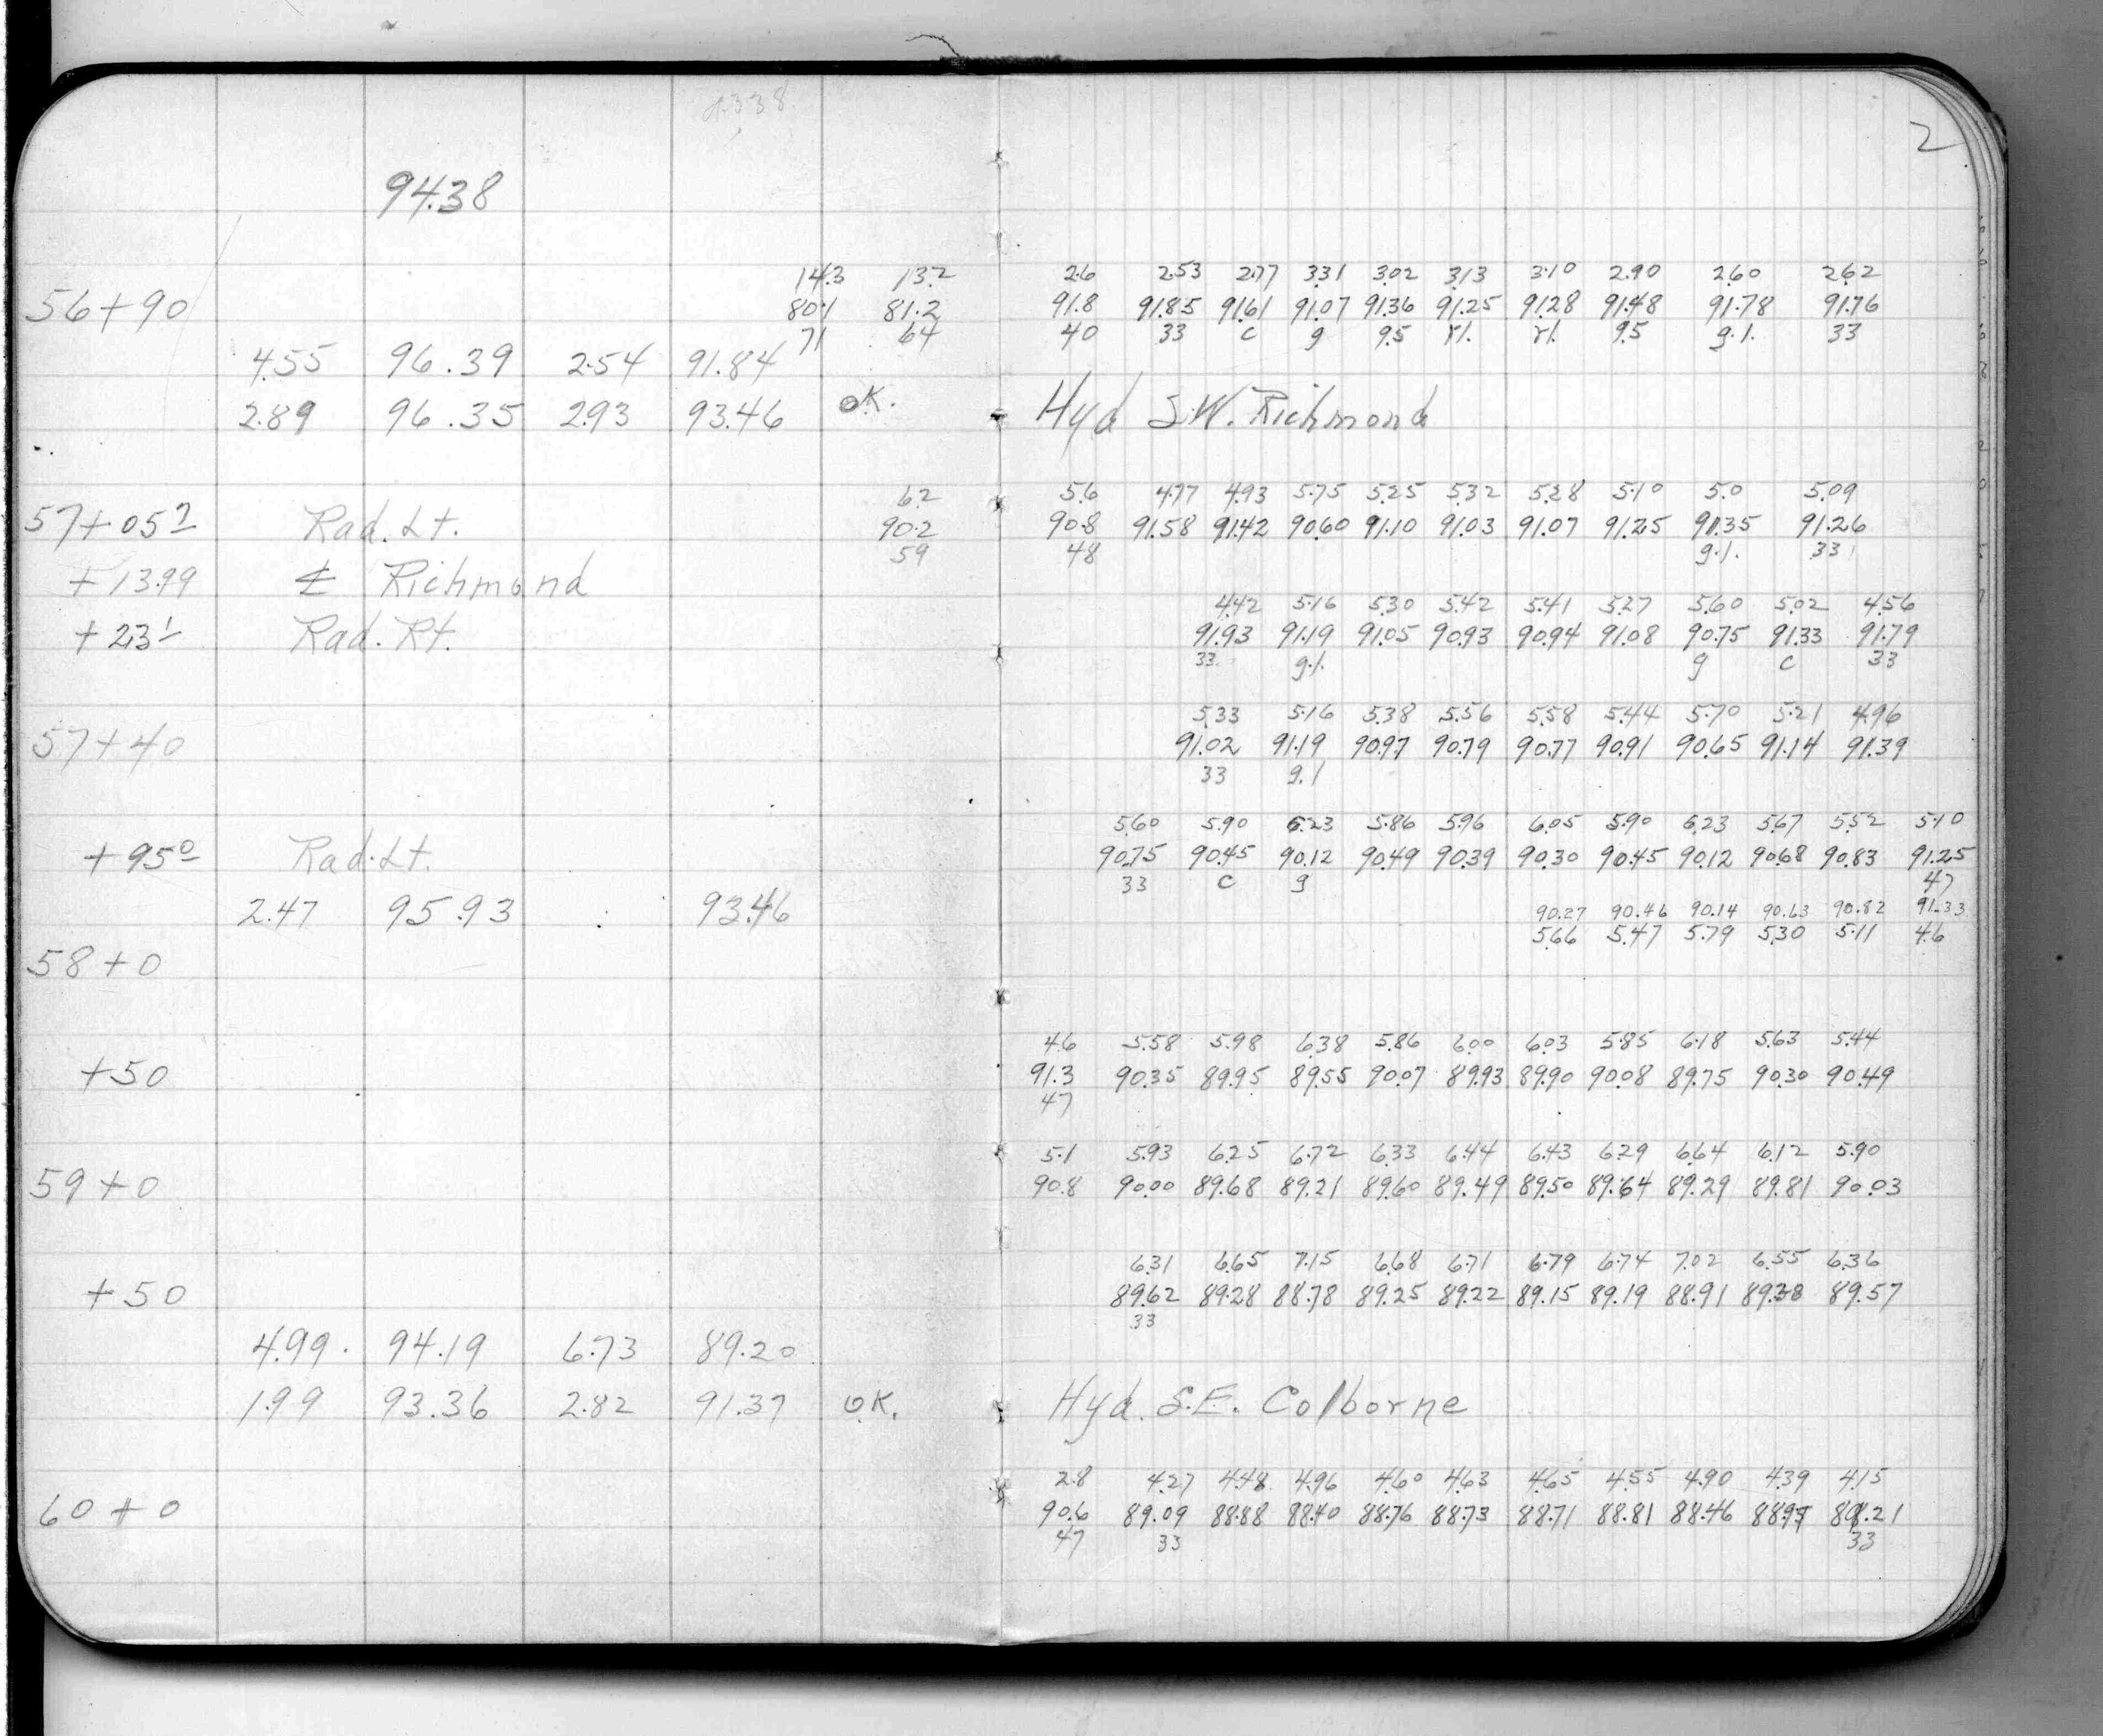 2
94.38
14.3 13.2 2.6 2.53 2.77 3.31 3.02 3.13 3.10 2.90 2.60 2.62
56+90 80.1 81.2 91.8 91.85 91.61 91.07 91.36 91.25 91.28 91.48 91.78 91.76
71 64 40 33 c g 9.5 r1. r1. 9.5 g.1. 33
4.55 96.39 2.54 91.84
2.89 96.35 2.93 93.46 OK. Hyd S.W. Richmond
6.2 5.6 4.77 4.93 5.75 5.25 5.32 5.28 5.10 5.0 5.09
57+05² Rad. Lt. 90.2 90.8 91.58 91.42 90.60 91.10 91.03 91.07 91.25 91.35 91.26
59 48 g.1. 33
+13.99 ℄ Richmond
4.42 5.16 5.30 5.42 5.41 5.27 5.60 5.02 4.56
+23¹ Rad. Rt. 91.93 91.19 91.05 90.93 90.94 91.08 90.75 91.33 91.79
33 g.1. g c 33
5.33 5.16 5.38 5.56 5.58 5.44 5.70 5.21 4.96
57+40 91.02 91.19 90.97 90.79 90.77 90.91 90.65 91.14 91.39
33 g.1
5.60 5.90 6.23 5.86 5.96 6.05 5.90 6.23 5.67 5.52 5.10
+95⁰ Rad. Lt. 90.75 90.45 90.12 90.49 90.39 90.30 90.45 90.12 90.68 90.83 91.25
33 c g 47
2.47 95.93 93.46 90.27 90.46 90.14 90.63 90.82 91.33
5.66 5.47 5.79 5.30 5.11 4.6
58+0
4.6 5.58 5.98 6.38 5.86 6.00 6.03 5.85 6.18 5.63 5.44
+50 91.3 90.35 89.95 89.55 90.07 89.93 89.90 90.08 89.75 90.30 90.49
47
5.1 5.93 6.25 6.72 6.33 6.44 6.43 6.29 6.64 6.12 5.90
59+0 90.8 90.00 89.68 89.21 89.60 89.49 89.50 89.64 89.29 89.81 90.03
6.31 6.65 7.15 6.68 6.71 6.79 6.74 7.02 6.55 6.36
+50 89.62 89.28 88.78 89.25 89.22 89.15 89.19 88.91 89.38 89.57
33
4.99 94.19 6.73 89.20
1.99 93.36 2.82 91.37 OK. Hyd. S.E. Colborne
2.8 4.27 4.48 4.96 4.60 4.63 4.65 4.55 4.90 4.39 4.15
60+0 90.6 89.09 88.88 88.40 88.76 88.73 88.71 88.81 88.46 88.97 89.21
47 33 33